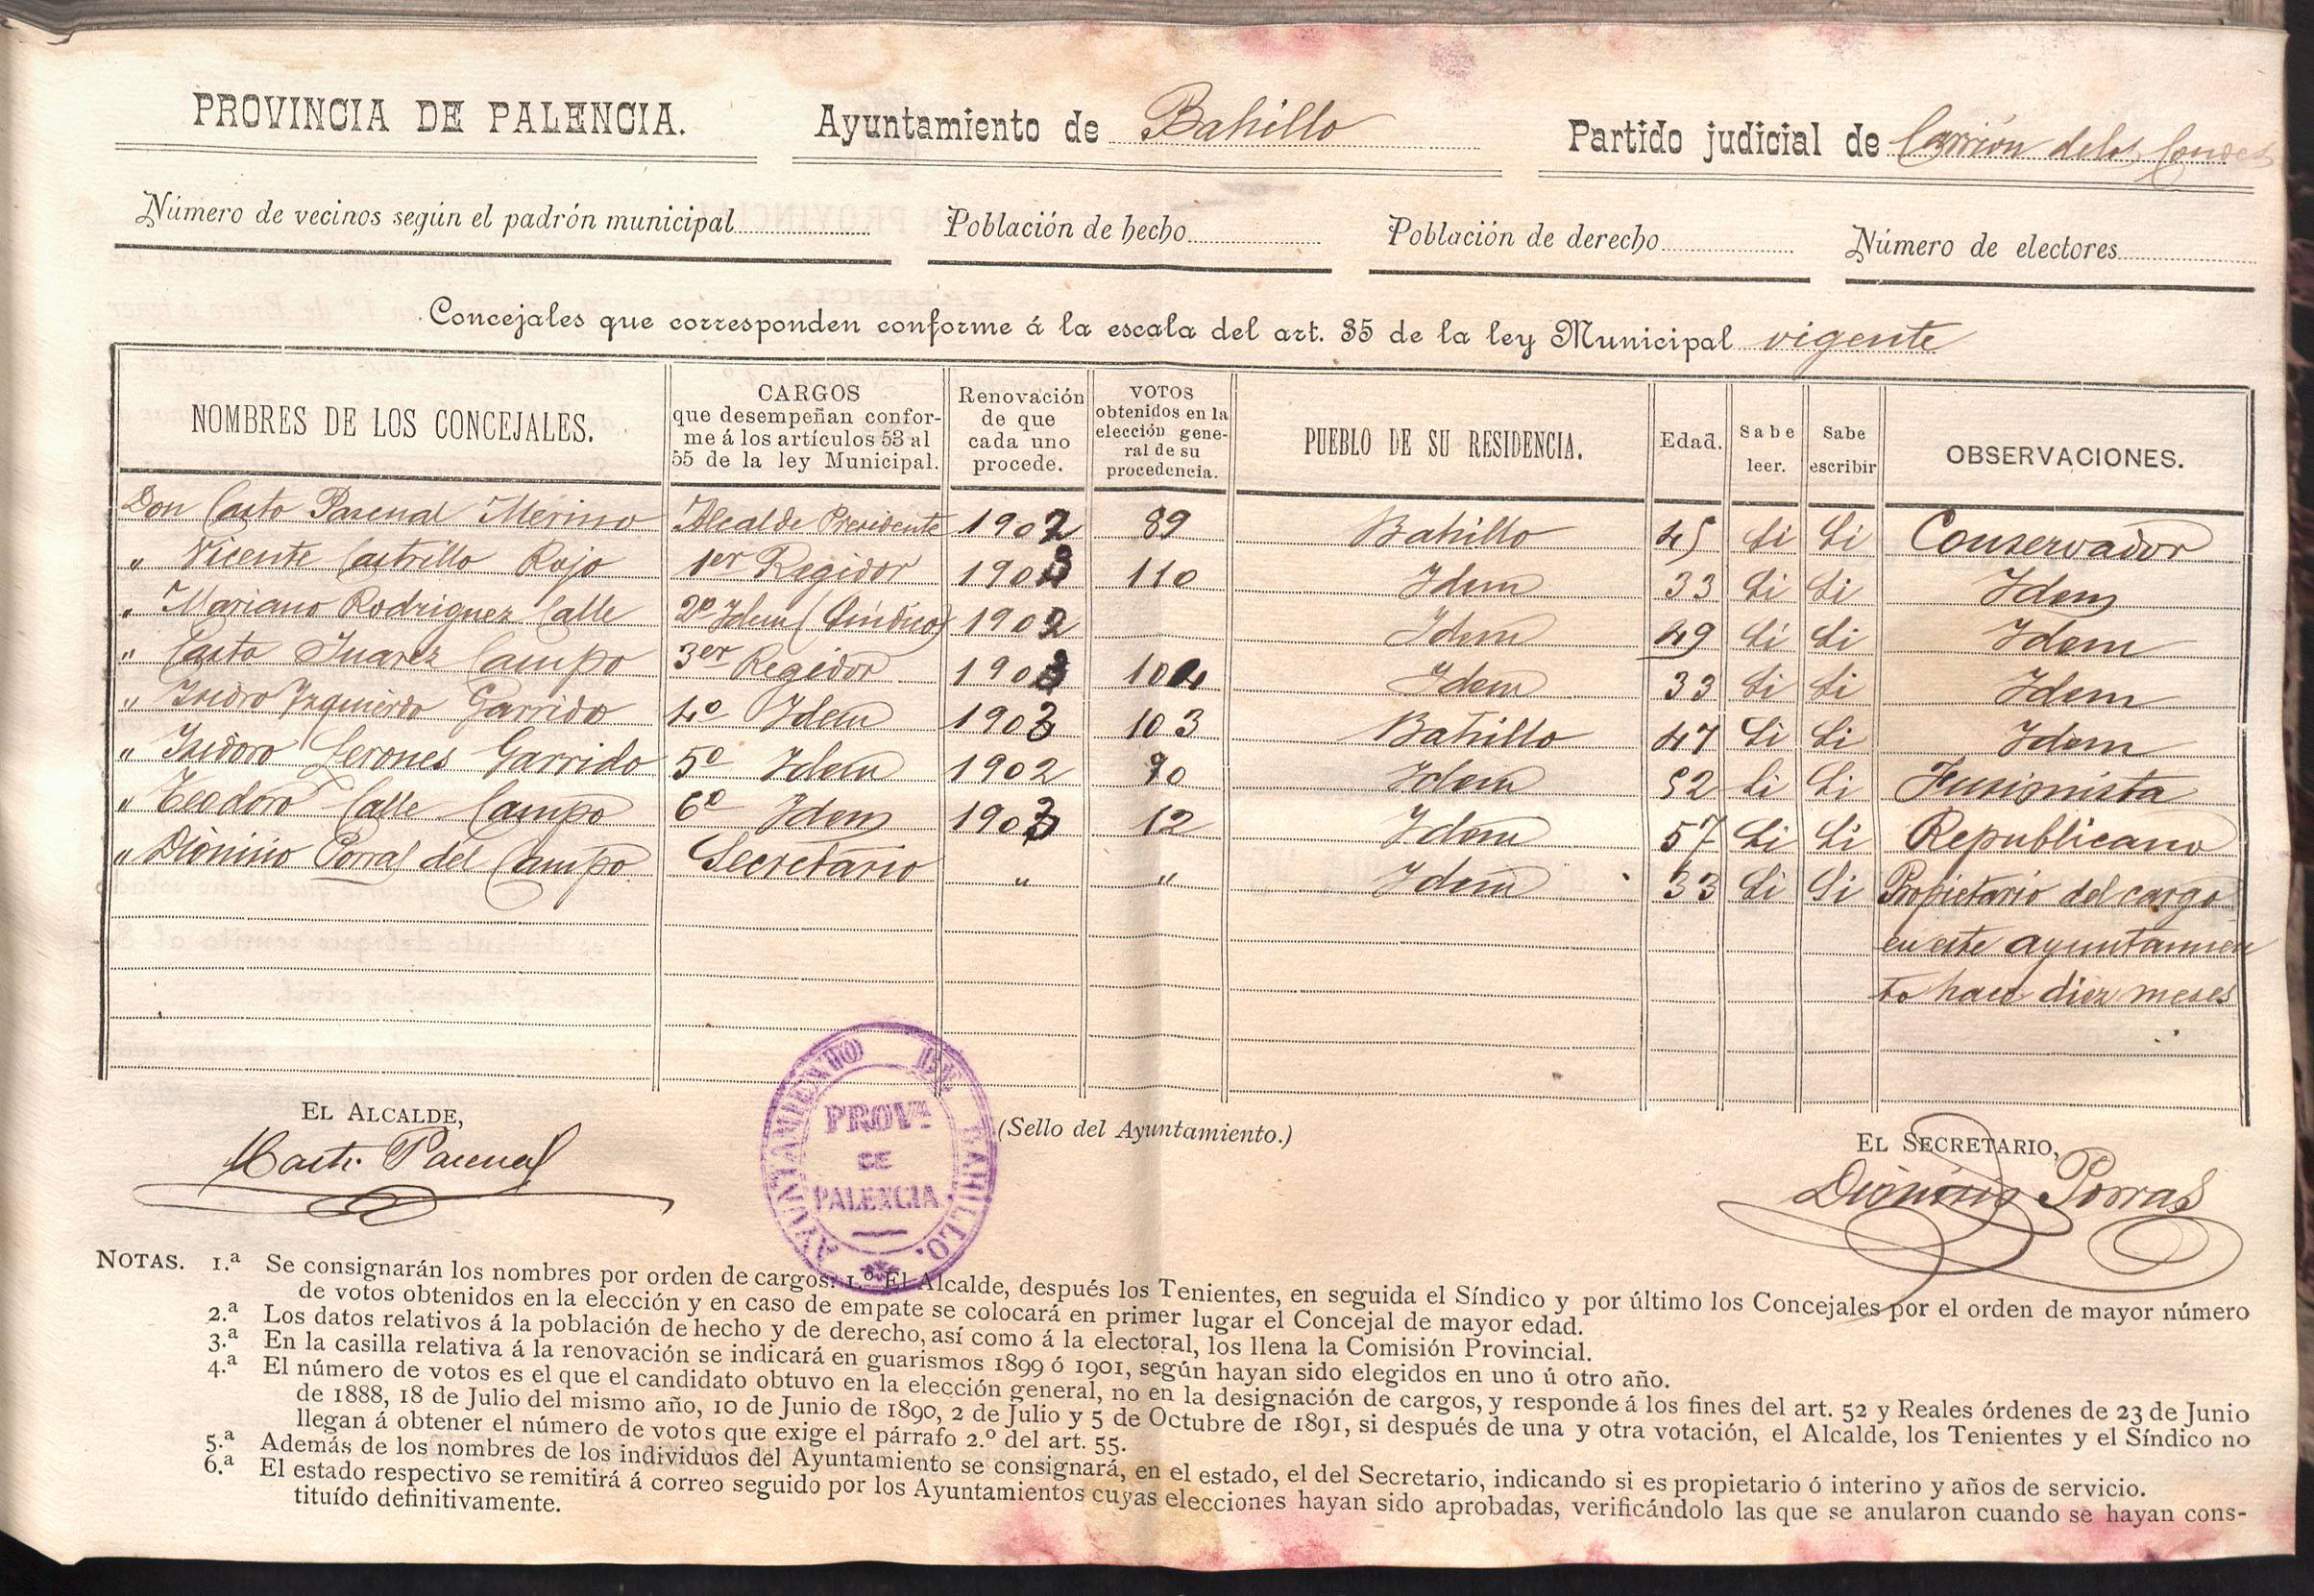 PROVINCIA DE PALENCIA. Ayuntamiento de Bahillo Partido judicial de Carrión de los Condes
Número de vecinos según el padrón municipal Población de hecho Población de derecho Número de electores
Concejales que corresponden conforme á la escala del art. 35 de la ley Municipal vigente
NOMBRES DE LOS CONCEJALES. CARGOS que desempeñan conforme á los artículos 53 al 55 de la ley Municipal. Renovación de que cada uno procede. VOTOS obtenidos en la elección general de su procedencia. PUEBLO DE SU RESIDENCIA. Edad. Sabe leer. Sabe escribir OBSERVACIONES.
Don Casto Pascual Merino Alcalde Presidente 1902 89 Bahillo 45 Si Si Conservador
" Vicente Castrillo Rojo 1er Regidor 1903 110 Idem 33 Si Si Idem
" Mariano Rodriguez Calle 2º Idem (Síndico) 1902 Idem 49 Si Si Idem
" Casto Juarez Campo 3er Regidor 1903 104 Idem 33 Si Si Idem
" Isidro Izquierdo Garrido 4º Idem 1903 103 Bahillo 47 Si Si Idem
" Isidoro Lerones Garrido 5º Idem 1902 90 Idem 52 Si Si Fusionista
" Teodoro Calle Campo 6º Idem 1903 12 Idem 57 Si Si Republicano
" Dionisio Porras del Campo Secretario " " Idem 33 Si Si Propietario del cargo
en este ayuntamien
to hace diez meses
EL ALCALDE,
Casto Pascual
AYUNTAMIENTO DE BAHILLO.
PROVª
DE
PALENCIA
(Sello del Ayuntamiento.)
EL SECRETARIO,
Dionisio Porras
NOTAS. 1.ª Se consignarán los nombres por orden de cargos: 1.º El Alcalde, después los Tenientes, en seguida el Síndico y por último los Concejales por el orden de mayor número
de votos obtenidos en la elección y en caso de empate se colocará en primer lugar el Concejal de mayor edad.
2.ª Los datos relativos á la población de hecho y de derecho, así como á la electoral, los llena la Comisión Provincial.
3.ª En la casilla relativa á la renovación se indicará en guarismos 1899 ó 1901, según hayan sido elegidos en uno ú otro año.
4.ª El número de votos es el que el candidato obtuvo en la elección general, no en la designación de cargos, y responde á los fines del art. 52 y Reales órdenes de 23 de Junio
de 1888, 18 de Julio del mismo año, 10 de Junio de 1890, 2 de Julio y 5 de Octubre de 1891, si después de una y otra votación, el Alcalde, los Tenientes y el Síndico no
llegan á obtener el número de votos que exige el párrafo 2.º del art. 55.
5.ª Además de los nombres de los individuos del Ayuntamiento se consignará, en el estado, el del Secretario, indicando si es propietario ó interino y años de servicio.
6.ª El estado respectivo se remitirá á correo seguido por los Ayuntamientos cuyas elecciones hayan sido aprobadas, verificándolo las que se anularon cuando se hayan cons-
tituído definitivamente.